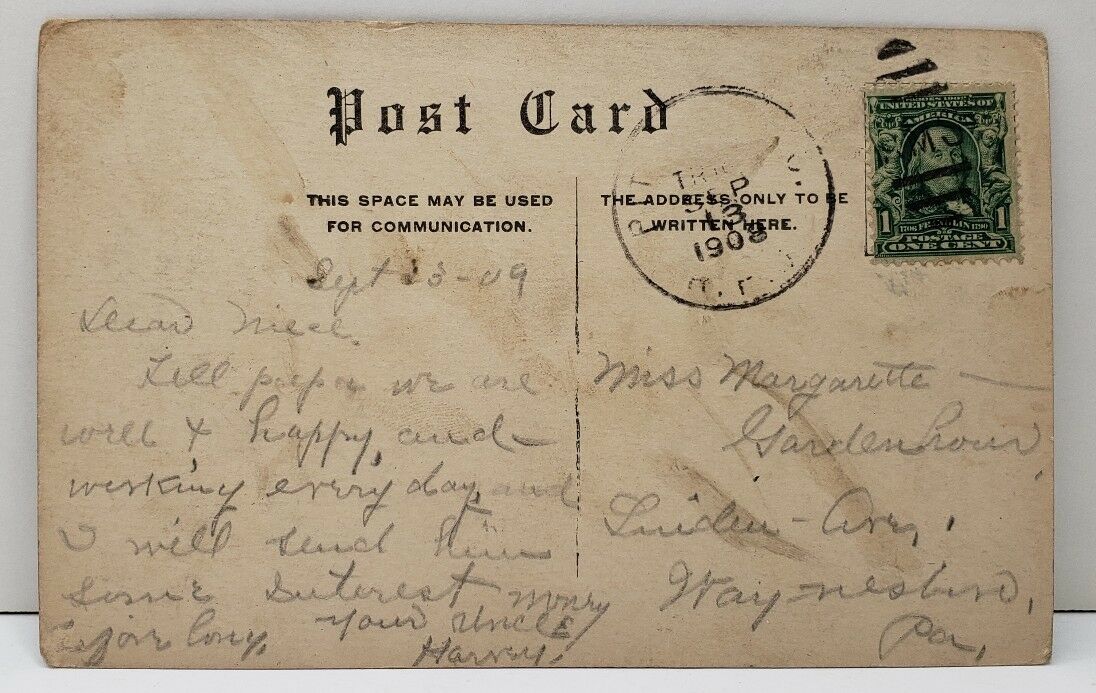 Post Card
THIS SPACE MAY BE USED
FOR COMMUNICATION.
THE ADDRESS ONLY TO BE
WRITTEN HERE.
SEP
13
1908
UNITED STATES OF
AMERICA
1 1706 FRANKLIN 1790 1
POSTAGE
ONE CENT
Sept 13-09
Dear Niece.
Tell papa we are
well & happy, and
working every day, and
I will send him
some Interest money
before long,
Your Uncle
Harvey.
Miss Margarette
Gardenhour,
Linden-Ave,
Waynesboro,
Pa,